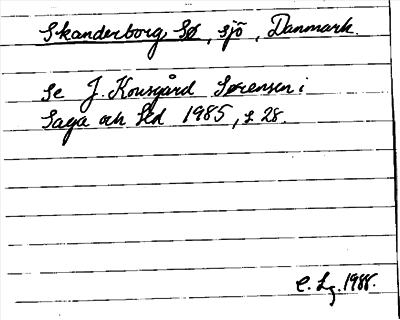 Skanderborg Sø, sjö, Danmark.
Se J. Kousgård Sørensen i
Saga och Sed 1985, s 28.
C. Lg. 1988.